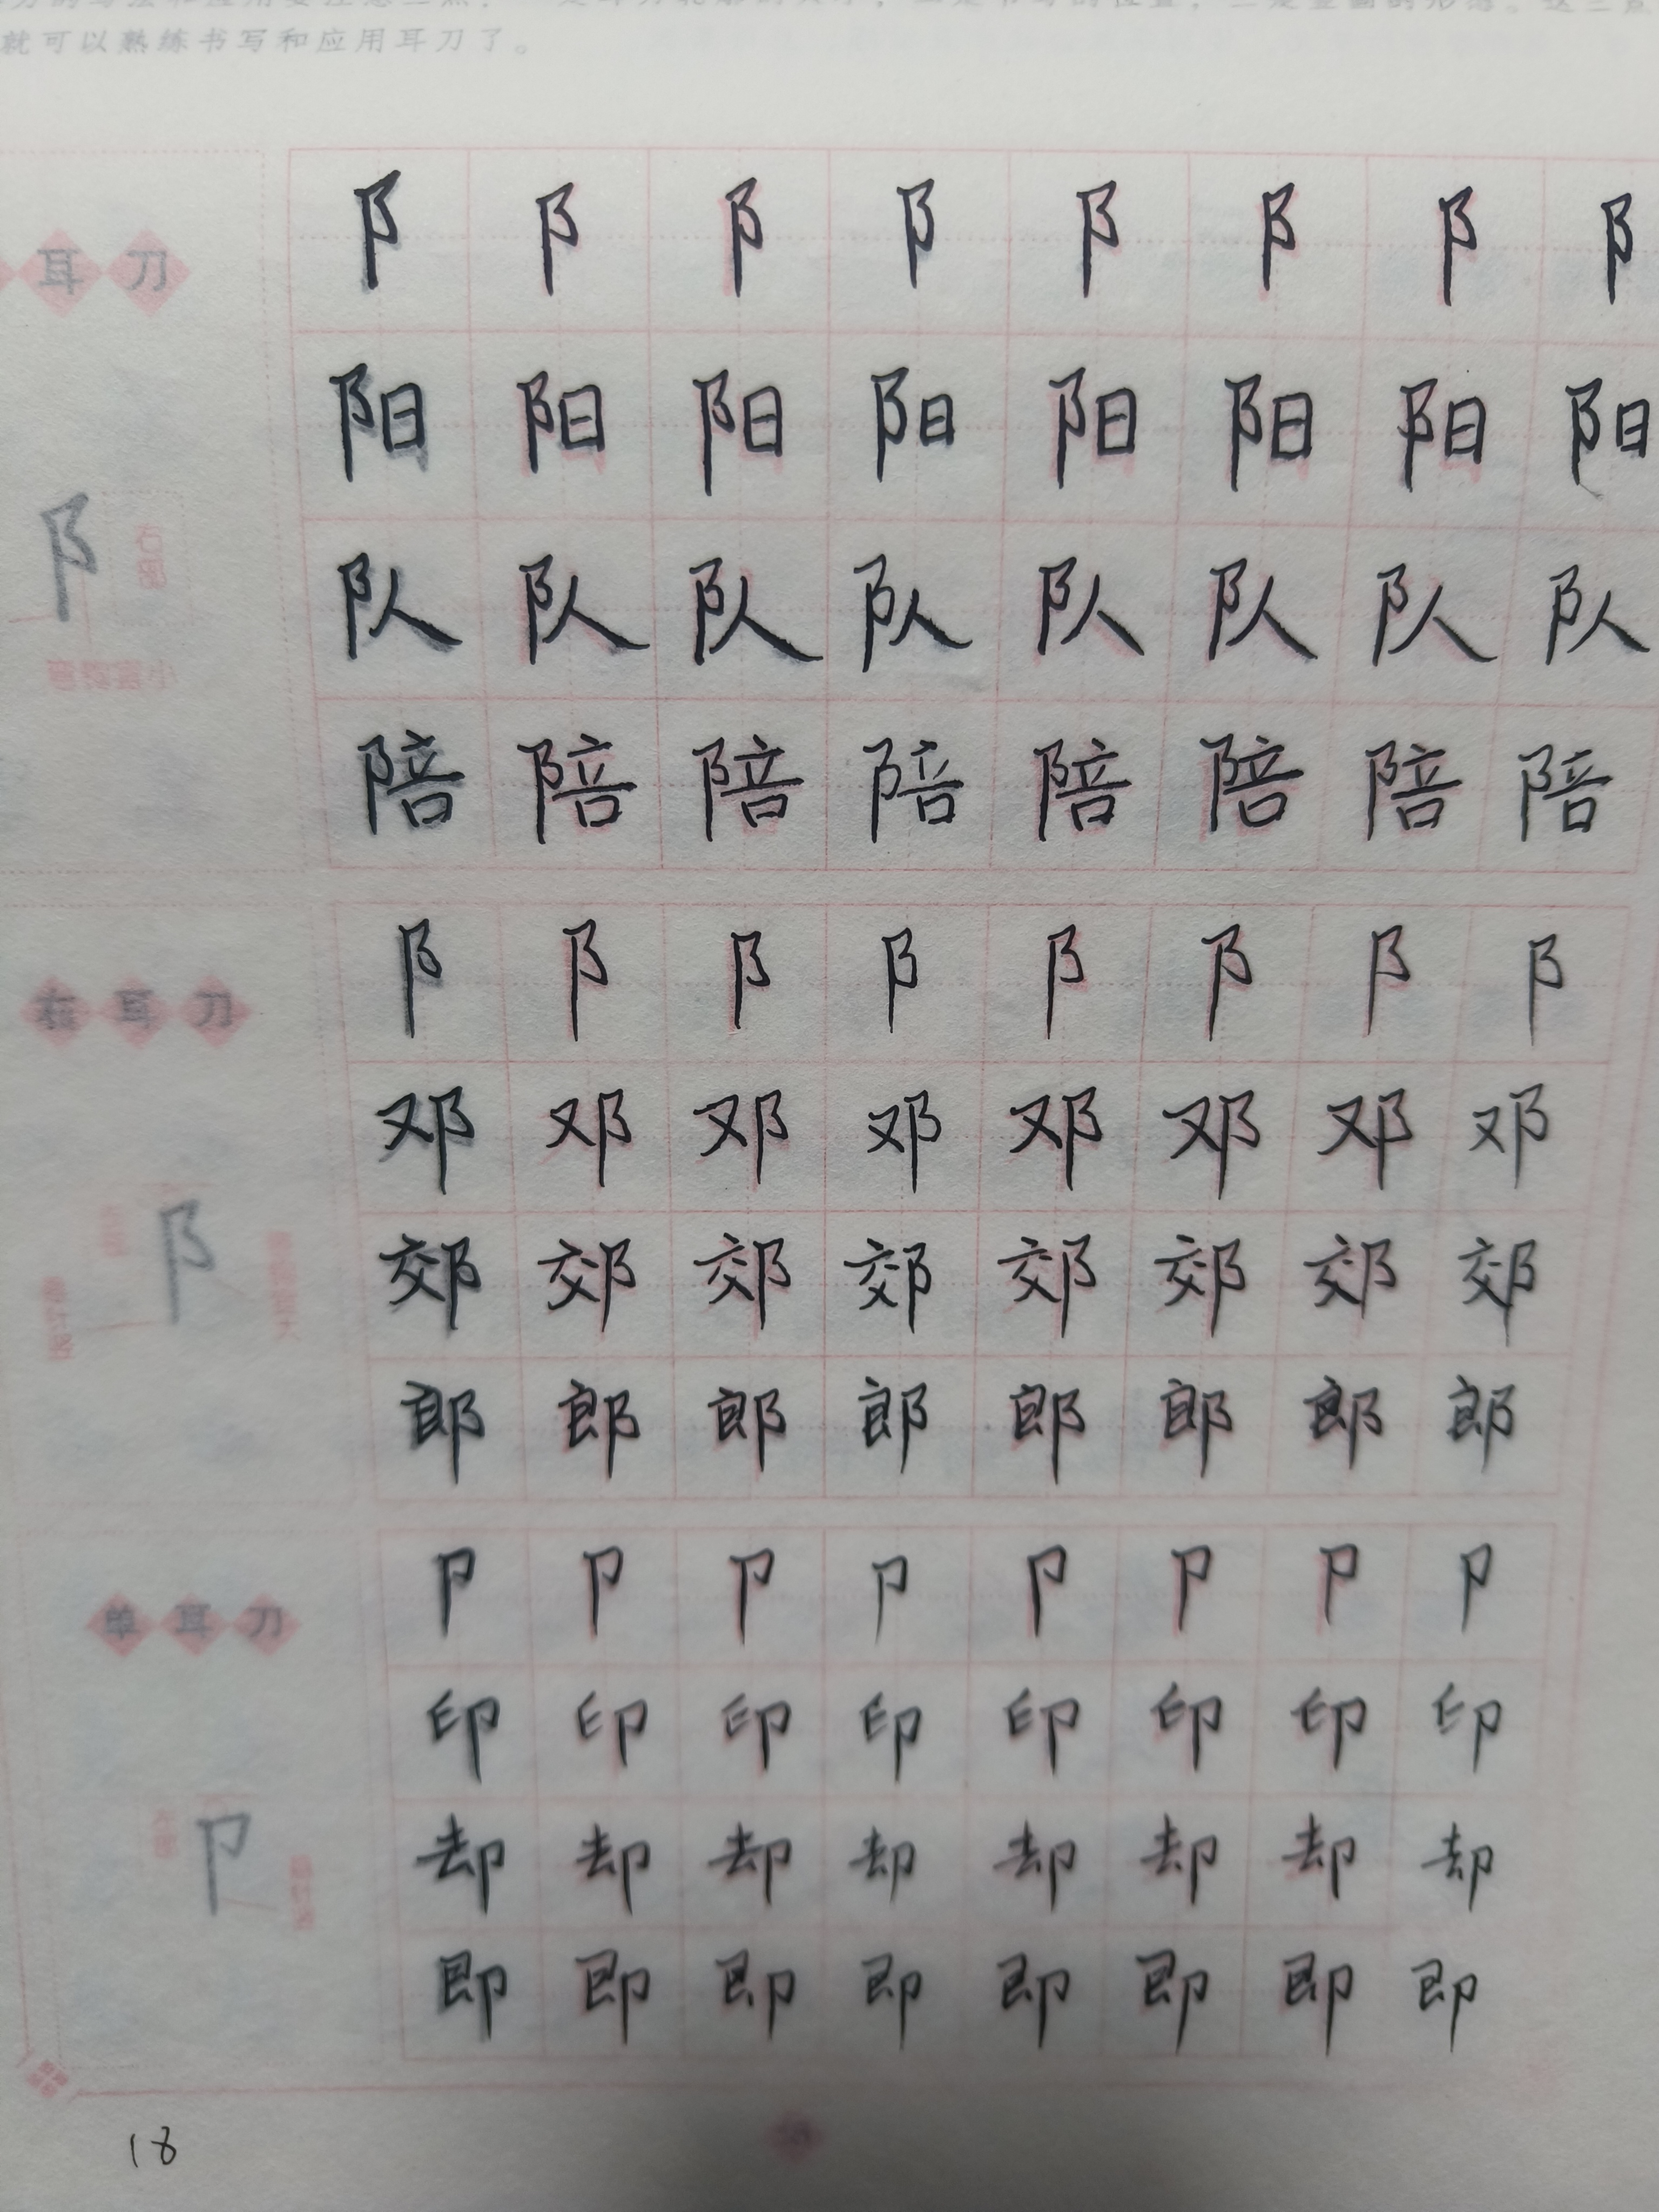 就可以熟练书写和应用耳刀了。
耳刀
阝 阝 阝 阝 阝 阝 阝 阝
阳 阳 阳 阳 阳 阳 阳 阳
阝
队 队 队 队 队 队 队 队
陪 陪 陪 陪 陪 陪 陪 陪
右耳刀
阝 阝 阝 阝 阝 阝 阝 阝
邓 邓 邓 邓 邓 邓 邓 邓
阝
郊 郊 郊 郊 郊 郊 郊 郊
郎 郎 郎 郎 郎 郎 郎 郎
单耳刀
卩 卩 卩 卩 卩 卩 卩 卩
印 印 印 印 印 印 印 印
卩
却 却 却 却 却 却 却 却
即 即 即 即 即 即 即 即
18